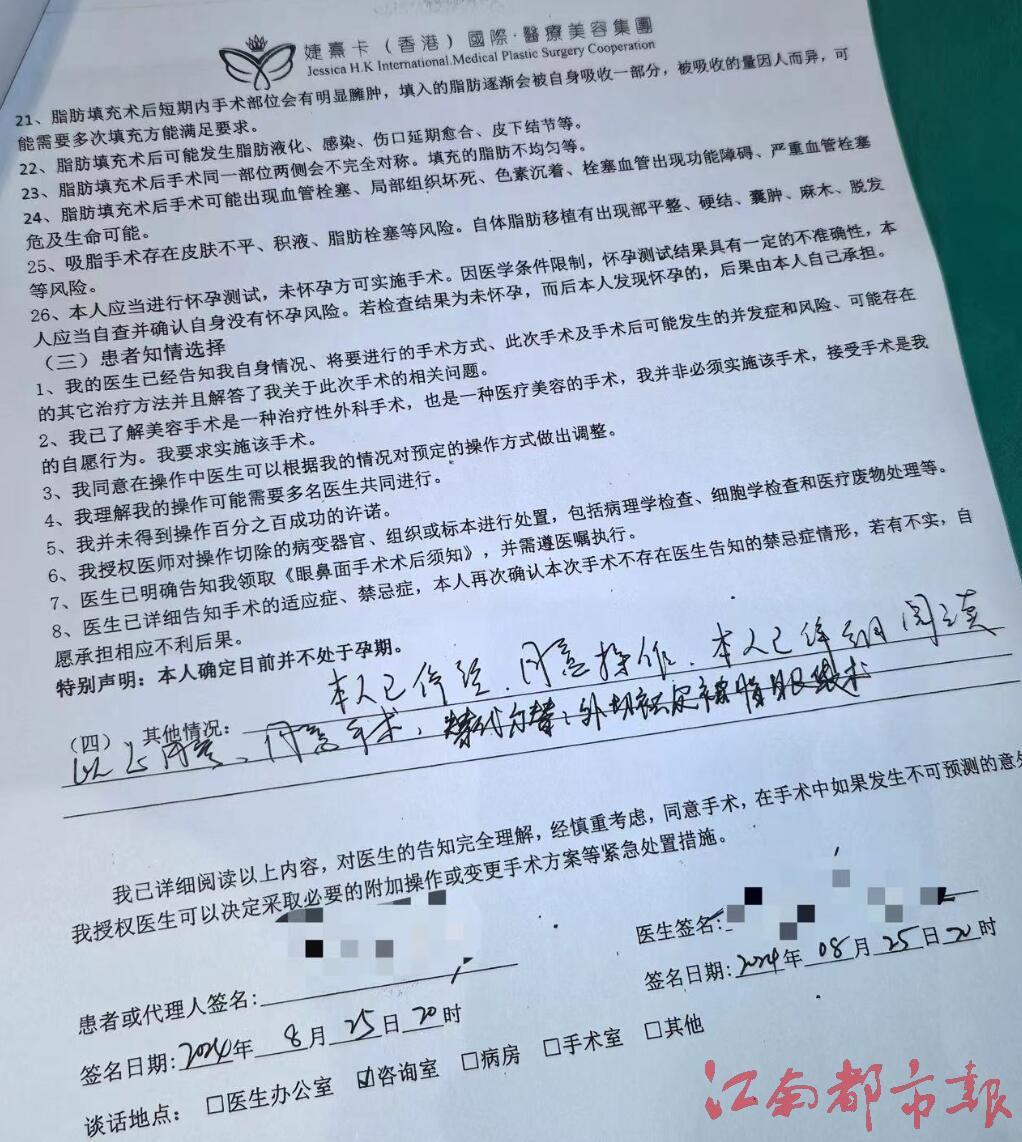 婕熹卡（香港）國際·醫療美容集團
Jessica H.K International.Medical Plastic Surgery Cooperation
21、脂肪填充术后短期内手术部位会有明显臃肿，填入的脂肪逐渐会被自身吸收一部分，被吸收的量因人而异，可
能需要多次填充方能满足要求。
22、脂肪填充术后可能发生脂肪液化、感染、伤口延期愈合、皮下结节等。
23、脂肪填充术后手术同一部位两侧会不完全对称。填充的脂肪不均匀等。
24、脂肪填充术后手术可能出现血管栓塞、局部组织坏死、色素沉着、栓塞血管出现功能障碍、严重血管栓塞
危及生命可能。
25、吸脂手术存在皮肤不平、积液、脂肪栓塞等风险。自体脂肪移植有出现部平整、硬结、囊肿、麻木、脱发
等风险。
26、本人应当进行怀孕测试，未怀孕方可实施手术。因医学条件限制，怀孕测试结果具有一定的不准确性，本
人应当自查并确认自身没有怀孕风险。若检查结果为未怀孕，而后本人发现怀孕的，后果由本人自己承担。
（三）患者知情选择
1、我的医生已经告知我自身情况、将要进行的手术方式、此次手术及手术后可能发生的并发症和风险、可能存在
的其它治疗方法并且解答了我关于此次手术的相关问题。
2、我已了解美容手术是一种治疗性外科手术，也是一种医疗美容的手术，我并非必须实施该手术，接受手术是我
的自愿行为。我要求实施该手术。
3、我同意在操作中医生可以根据我的情况对预定的操作方式做出调整。
4、我理解我的操作可能需要多名医生共同进行。
5、我并未得到操作百分之百成功的许诺。
6、我授权医师对操作切除的病变器官、组织或标本进行处置，包括病理学检查、细胞学检查和医疗废物处理等。
7、医生已明确告知我领取《眼鼻面手术术后须知》，并需遵医嘱执行。
8、医生已详细告知手术的适应症、禁忌症，本人再次确认本次手术不存在医生告知的禁忌症情形，若有不实，自
愿承担相应不利后果。
特别声明：本人确定目前并不处于孕期。
（四）其他情况：本人已停经、同意操作、本人已详细阅读
以上内容、同意手术，
我已详细阅读以上内容，对医生的告知完全理解，经慎重考虑，同意手术，在手术中如果发生不可预测的意外
我授权医生可以决定采取必要的附加操作或变更手术方案等紧急处置措施。
患者或代理人签名：
医生签名：
签名日期：2024年 8月 25日 20时
签名日期：2024年 08月 25日 20时
谈话地点： □医生办公室 ☑咨询室 □病房 □手术室 □其他
江南都市報